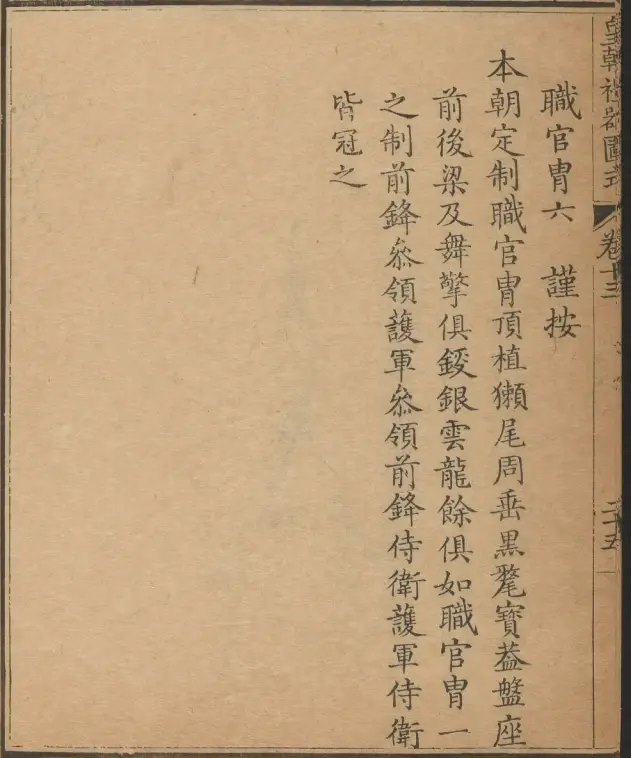 皇朝禮器圖式 卷十三 二十五
職官冑六 謹按
本朝定制職官冑頂植獺尾周垂黑氂寳葢盤座
前後梁及舞擎俱鋄銀雲龍餘俱如職官冑一
之制前鋒叅領護軍叅領前鋒侍衛護軍侍衛
皆冠之